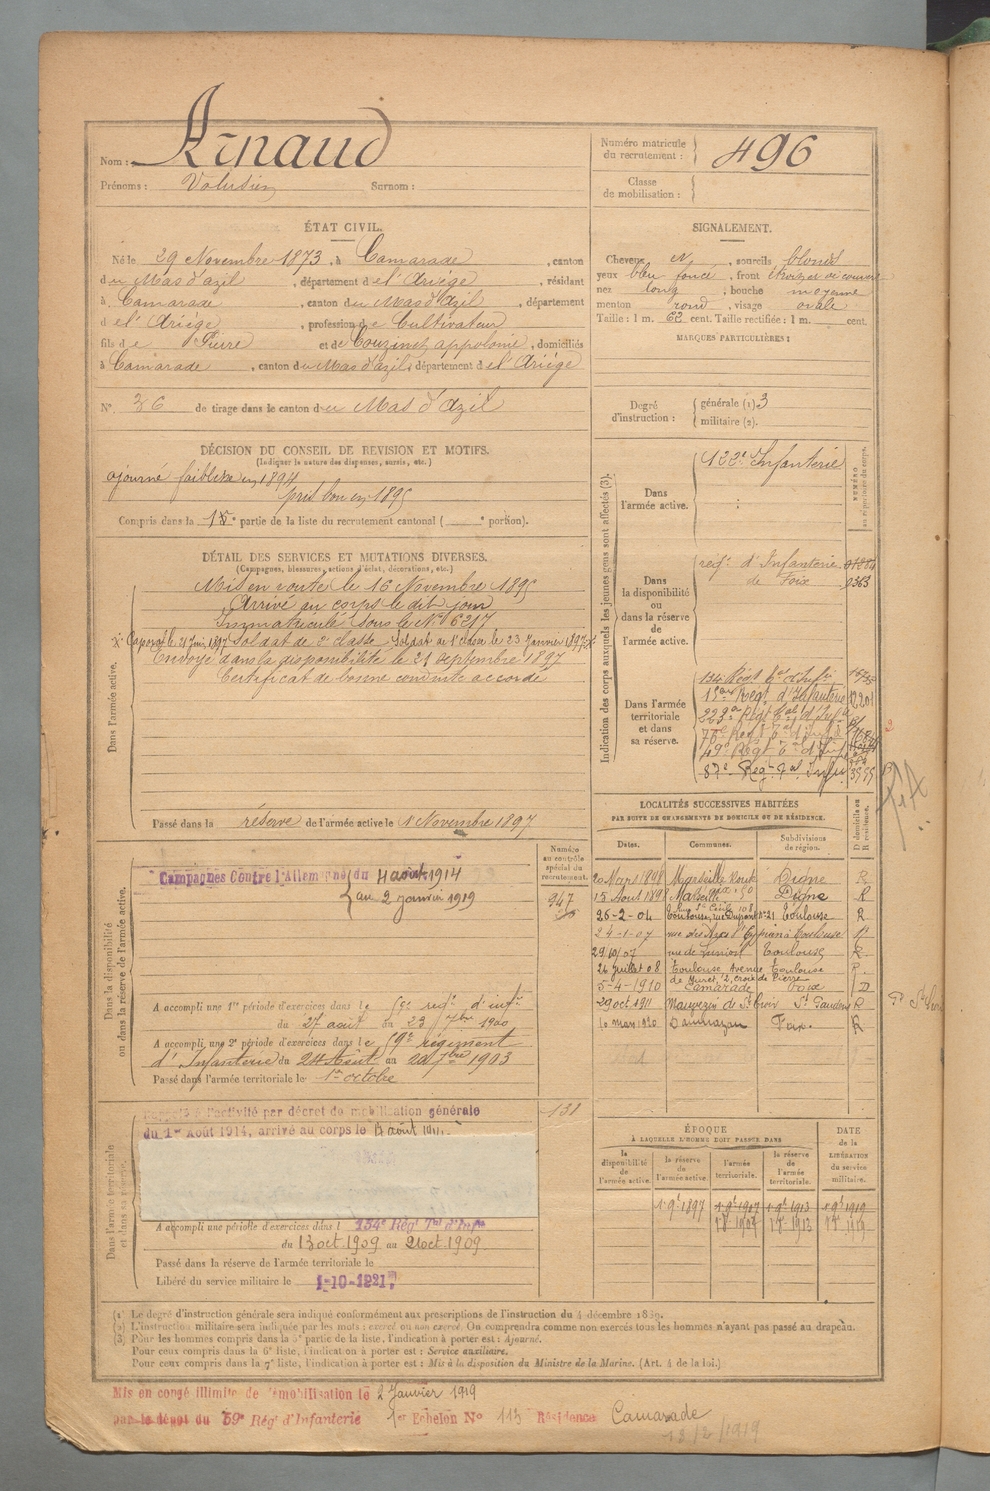 Nom : Arnaud
Prénoms : Volusien Surnom :
Numéro matricule du recrutement : 496
Classe de mobilisation :
ÉTAT CIVIL.
Né le 29 Novembre 1873, à Camarade, canton
du Mas d'azil, département de l'Ariège, résidant
à Camarade, canton du Mas d'Azil, département
de l'Ariège, profession de Cultivateur
fils de Pierre et de Couzinet appolonie, domiciliés
à Camarade, canton du Mas d'azil, département de l'Ariège
N° 36 de tirage dans le canton du Mas d'azil
SIGNALEMENT.
Cheveux N, sourcils blonds
yeux bleu foncé, front étroit et couvert
nez long, bouche moyenne
menton rond, visage ovale
Taille : 1 m. 62 cent. Taille rectifiée : 1 m. cent.
MARQUES PARTICULIÈRES :
Degré d'instruction : générale (1) 3
militaire (2).
DÉCISION DU CONSEIL DE REVISION ET MOTIFS.
(Indiquer la nature des dispenses, sursis, etc.)
ajourné faiblesse en 1894
pris bon en 1895
Compris dans la 1e partie de la liste du recrutement cantonal ( e portion).
DÉTAIL DES SERVICES ET MUTATIONS DIVERSES.
(Campagnes, blessures, actions d'éclat, décorations, etc.)
Dans l'armée active.
Mis en route le 16 Novembre 1895
Arrivé au corps le dit jour
Immatriculé sous le N° 6217
Caporal le 21 Juin 1897 Soldat de 2e classe Soldat de 1e classe le 23 Janvier 1897
Envoyé dans la disponibilité le 21 septembre 1897
Certificat de bonne conduite accordé
Passé dans la réserve de l'armée active le 1 Novembre 1897
Indication des corps auxquels les jeunes gens sont affectés (3).
NUMÉRO au répertoire du corps.
Dans l'armée active.
122e Infanterie
Dans la disponibilité ou dans la réserve de l'armée active.
régt d'Infanterie
de Foix 0363
Dans l'armée territoriale et dans sa réserve.
134 Régt tal d'Infie
Régt d'Infanterie
223e Régt tal d'Infie
49e Régt tal d'Inf
87e Régt tal Infie
LOCALITÉS SUCCESSIVES HABITÉES
PAR SUITE DE CHANGEMENTS DE DOMICILE OU DE RÉSIDENCE.
Dates. Communes. Subdivisions de région. D domicile ou R résidence.
20 Mars 1898 Marseille Digne R
15 Aout 1898 Marseille Digne R
26-2-04 Toulouse, rue Dupont n° 21 Toulouse R
24-1-07 Toulouse
29/10/07 Toulouse R
24 juillet 08 Toulouse, Avenue de Muret, 2, croix de Pierre Toulouse R
5-4-1910 Camarade Foix D
29 oct. 1911 Mauvezin de Ste Croix St Gaudens R
10 mars 1920 Daumazan Foix. R
Dans la disponibilité ou dans la réserve de l'armée active.
Numéro au contrôle spécial du recrutement.
947
Campagnes Contre l'Allemagne du 4 août 1914
au 2 janvier 1919
A accompli une 1re période d'exercices dans le régt d'infie
du 27 août au 23 7bre 1900
A accompli une 2e période d'exercices dans le régiment
d'Infanterie du 24 Août au 20 7bre 1903
Passé dans l'armée territoriale le 1er octobre
Dans l'armée territoriale et dans sa réserve.
131
Rappelé à l'activité par décret de mobilisation générale
du 1er Août 1914, arrivé au corps le
A accompli une période d'exercices dans l 134e Régt Tal d'Infie
du 13 oct 1909 au 21 oct 1909
Passé dans la réserve de l'armée territoriale le
Libéré du service militaire le 1-10-1921
ÉPOQUE
À LAQUELLE L'HOMME DOIT PASSER DANS
la disponibilité de l'armée active.
la réserve de l'armée active.
l'armée territoriale.
la réserve de l'armée territoriale.
DATE de la LIBÉRATION du service militaire.
1 9bre 1897 1 9bre 1907 1 9bre 1913 1 9bre 1919
1 8bre 1907 1 8bre 1913 1 8bre 1919
(1) Le degré d'instruction générale sera indiqué conformément aux prescriptions de l'instruction du 4 décembre 1889.
(2) L'instruction militaire sera indiquée par les mots : exercé ou non exercé. On comprendra comme non exercés tous les hommes n'ayant pas passé au drapeau.
(3) Pour les hommes compris dans la 5e partie de la liste, l'indication à porter est : Ajourné.
Pour ceux compris dans la 6e liste, l'indication à porter est : Service auxiliaire.
Pour ceux compris dans la 7e liste, l'indication à porter est : Mis à la disposition du Ministre de la Marine. (Art. 4 de la loi.)
Mis en congé illimité de démobilisation le 2 Janvier 1919
par le dépôt du 59e Régt d'Infanterie 1er Echelon N° 113 Résidence Camarade
13/2/1919